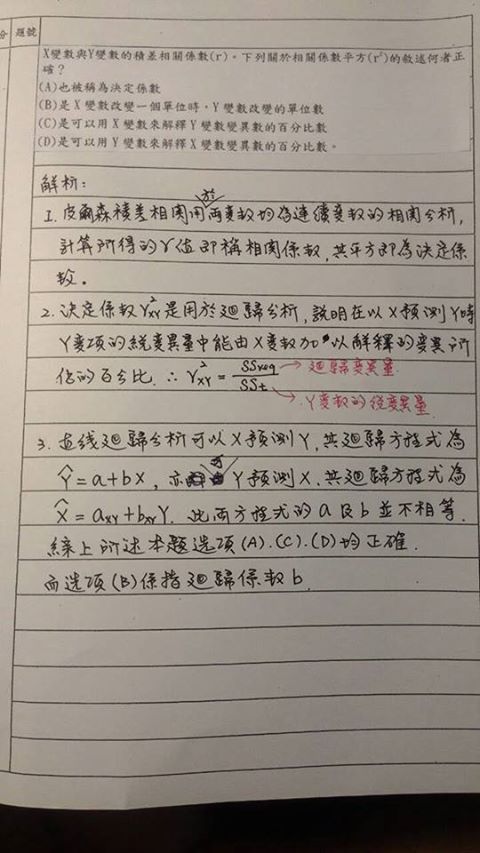 分 題號
X變數與Y變數的積差相關係數(r)。下列關於相關係數平方(r²)的敘述何者正
確？
(A)也被稱為決定係數
(B)是 X 變數改變一個單位時，Y 變數改變的單位數
(C)是可以用 X 變數來解釋 Y 變數變異數的百分比數
(D)是可以用 Y 變數來解釋 X 變數變異數的百分比數。
解析：
1. 皮爾森積差相關用於兩變數均為連續變數的相關分析，
計算所得的γ值即稱相關係數，其平方即為決定係
數。
2. 決定係數γ²xy是用於迴歸分析，說明在以X預測Y時
Y變項的總變異量中能由X變數加以解釋的變異所
佔的百分比. ∴ γ²xy = SSreg/SSt → 迴歸變異量
→ Y變數的總變異量
3. 直線迴歸分析可以X預測Y，其迴歸方程式為
Ŷ=a+bX，亦可Y預測X. 其迴歸方程式為
X̂=axy+bxyY. 此兩方程式的a及b並不相等.
綜上所述本題選項(A).(C).(D)均正確.
而選項(B)係指迴歸係數b.